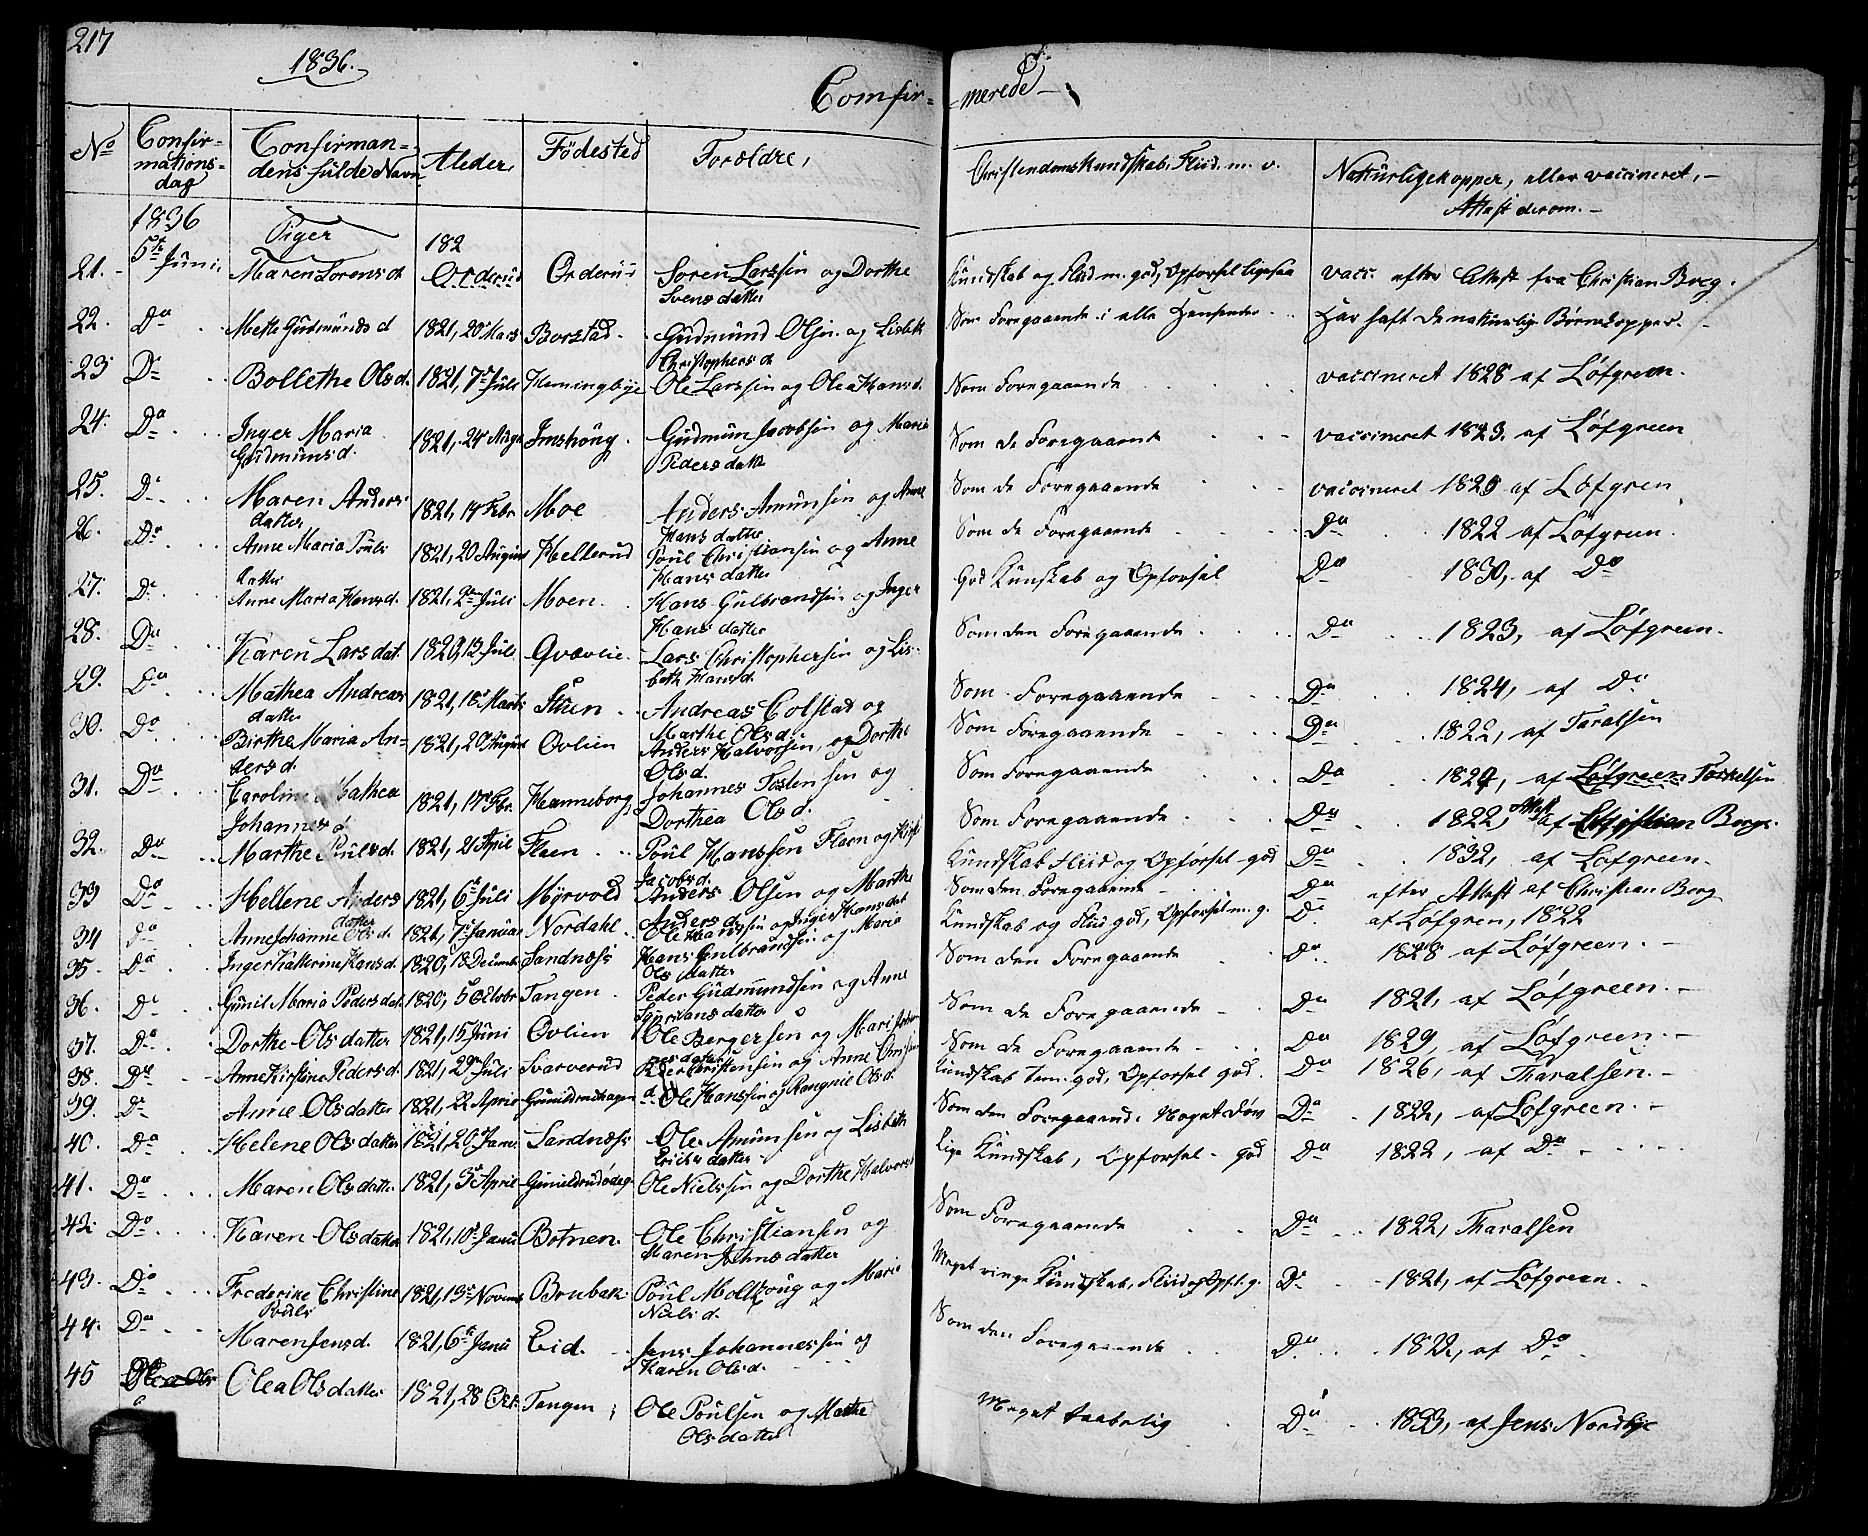 217
1836.
Comfir= =merede
No
Confir= mations= dag
Confirman= dens fulde Navn
Alder,
Födested
Foræeldre,
Christendoms Kundskab, Fliid. m. v.
Naturligekopper, eller vaccineret, Attest derom.
1836 Piger 182
21. 5te Juni. Maren Sörens d. Orderud Orderud Sören Larssen og Dorthe Svens datter Kundskab og Fliid m. god, Opforsel ligesaa vacc. efter Attest fra Christian Borg.
22. Do Mette Gudmunds d 1821, 20 Marts Borstad Gudmund Olsen og Lisbeth Christophers d. Som Foregaaende i alle Henseender Har haft de naturlige Börnekopper.
23 Do Bollethe Ols d. 1821, 7de Juli Hemingbye Ole Larssen og Olea Hans d. Som Foregaaende vaccineret 1828 af Löfgreen.
24. Do Inger Maria Gudmuns d. 1821, 24 Augu Imshöug. Gudmun Jacobsen og Maria Peders datte Som de Foregaaende vaccineret 1823. af Löfgreen
25. Do Maren Anders datter 1821, 14 Febr Moe Anders Amunsen og Anne Hans datter Som de Foregaaende vaccineret 1825 af Löfgren
26. Do Anne Maria Pouls datter 1821, 20 August Hellerud Poul Christiansen og Anne Hans datter Som de Foregaaende Do 1822 af Löfgreen.
27. Do Anne Maria Hans d. 1821, 2den Juli Moen. Hans Gulbrandsen og Inger Hans datter God Kunskab og Opforsel Do 1830, af Do
28. Do Karen Lars dat. 1820, 13 Juli Qvævlie Lars Christophersen og Lis= beth Hans d. Som den Foregaaende Do 1823, af Löfgreen.
29. Do Mathea Andreas datter 1821, 18 Marts Stuen Andreas Colstad og Marthe Ols d. Som Foregaaende Do 1824, af Do
30. Do Birthe Maria An= ders d. 1821, 20 August Ovlien Anders Halvorsen, og Dorthe Ols d. Som Foregaaende Do 1822, af Taralsen
31. Do Caroline Mathea Johannes d. 1821, 17 Febr. Hanneborg Johannes Tostensen og Dorthea Ols d. Som Foregaaende Do 1824, af Löfgreen Torkelsen
32. Do Marthe Pouls d. 1821, 21 April Flaen Poul Hanssen Flaen og Kirs Jacobs d. Som Foregaaende Do 1822, Attest af Christian Borg.
33 Do Hellene Anders datter 1821, 6te Juli Myrvold Anders Olsen og Marthe Anders d. Kundskab Fliid og Opforsel god Do 1832, af Löfgreen.
34 Do Anne Johanne Ols d. 1821, 7de Januar Nordahl Ole Hanssen og Inger Hansdat Som den Foregaaende Do efter Attest af Christian Borg
35. Do Inger Kattrine Hans d. 1820, 18 Decemb Sandnæss Hans Gulbrandsen og Maria Ols datter Kundskab og Fliid god, Opforsel m. g. Do af Löfgren, 1822
36. Do Gunil Maria Peders dat. 1820, 5 Octobr Tangen Peder Gudmundsen og Anne datter Som den Foregaaende Do 1828 af Löfgreen.
37. Do Dorthe Ols datter 1821, 15 Juni Ovlien Ole Bergersen og Mari Som de Foregaaende Do 1821, af Löfgreen.
38. Do Anne Kirstine Peders d. 1821, 29 Juli Svarverud Peder Christensen og Anne d. Som de Foregaaende Do 1829, af Löfgreen.
39. Do Anne Ols datter 1821, 22 April Gunildrudhagen Ole Hanssen og Rangnil Ols d. Kundskab tem. god, Opforsel god. Do 1826, af Tharalsen.
40. Do Helene Ols datter 1821, 20 Janu. Sandnæss Ole Amunsen og Lisbeth Erichs datter Som den Foregaaende. Noget döv Do 1822, af Löfgreen.
41. Do Maren Ols datter 1821, 3de April Gunildrudödeg. Ole Nielssen og Dorthe Halvors Lige Kundskab, Opforsel god Do 1822, af Do
42. Do Karen Ols datter 1821, 10de Janu Botnen. Ole Christiansen og Maren Johns datter Som Foregaaende Do 1822, Tharalsen
43. Do Frederike Christine Pouls 1821, 13de Novemb Brubak Poul Moltzoug og Marie Niels d. Meget ringe Kundskab, Fliid og Opf. t. g. Do 1821, af Löfgreen.
44. Do Maren Jens d. 1821, 6te Janu Eid. Jens Johannessen og Karen Ols d. Som den Foregaaende Do 1822, af Do
45 Olea Ols datter 1821, 28 Oct. Tangen Ole Poulsen og Marthe Ols datter Meget taabelig Do 1833, af Jens Nordbye